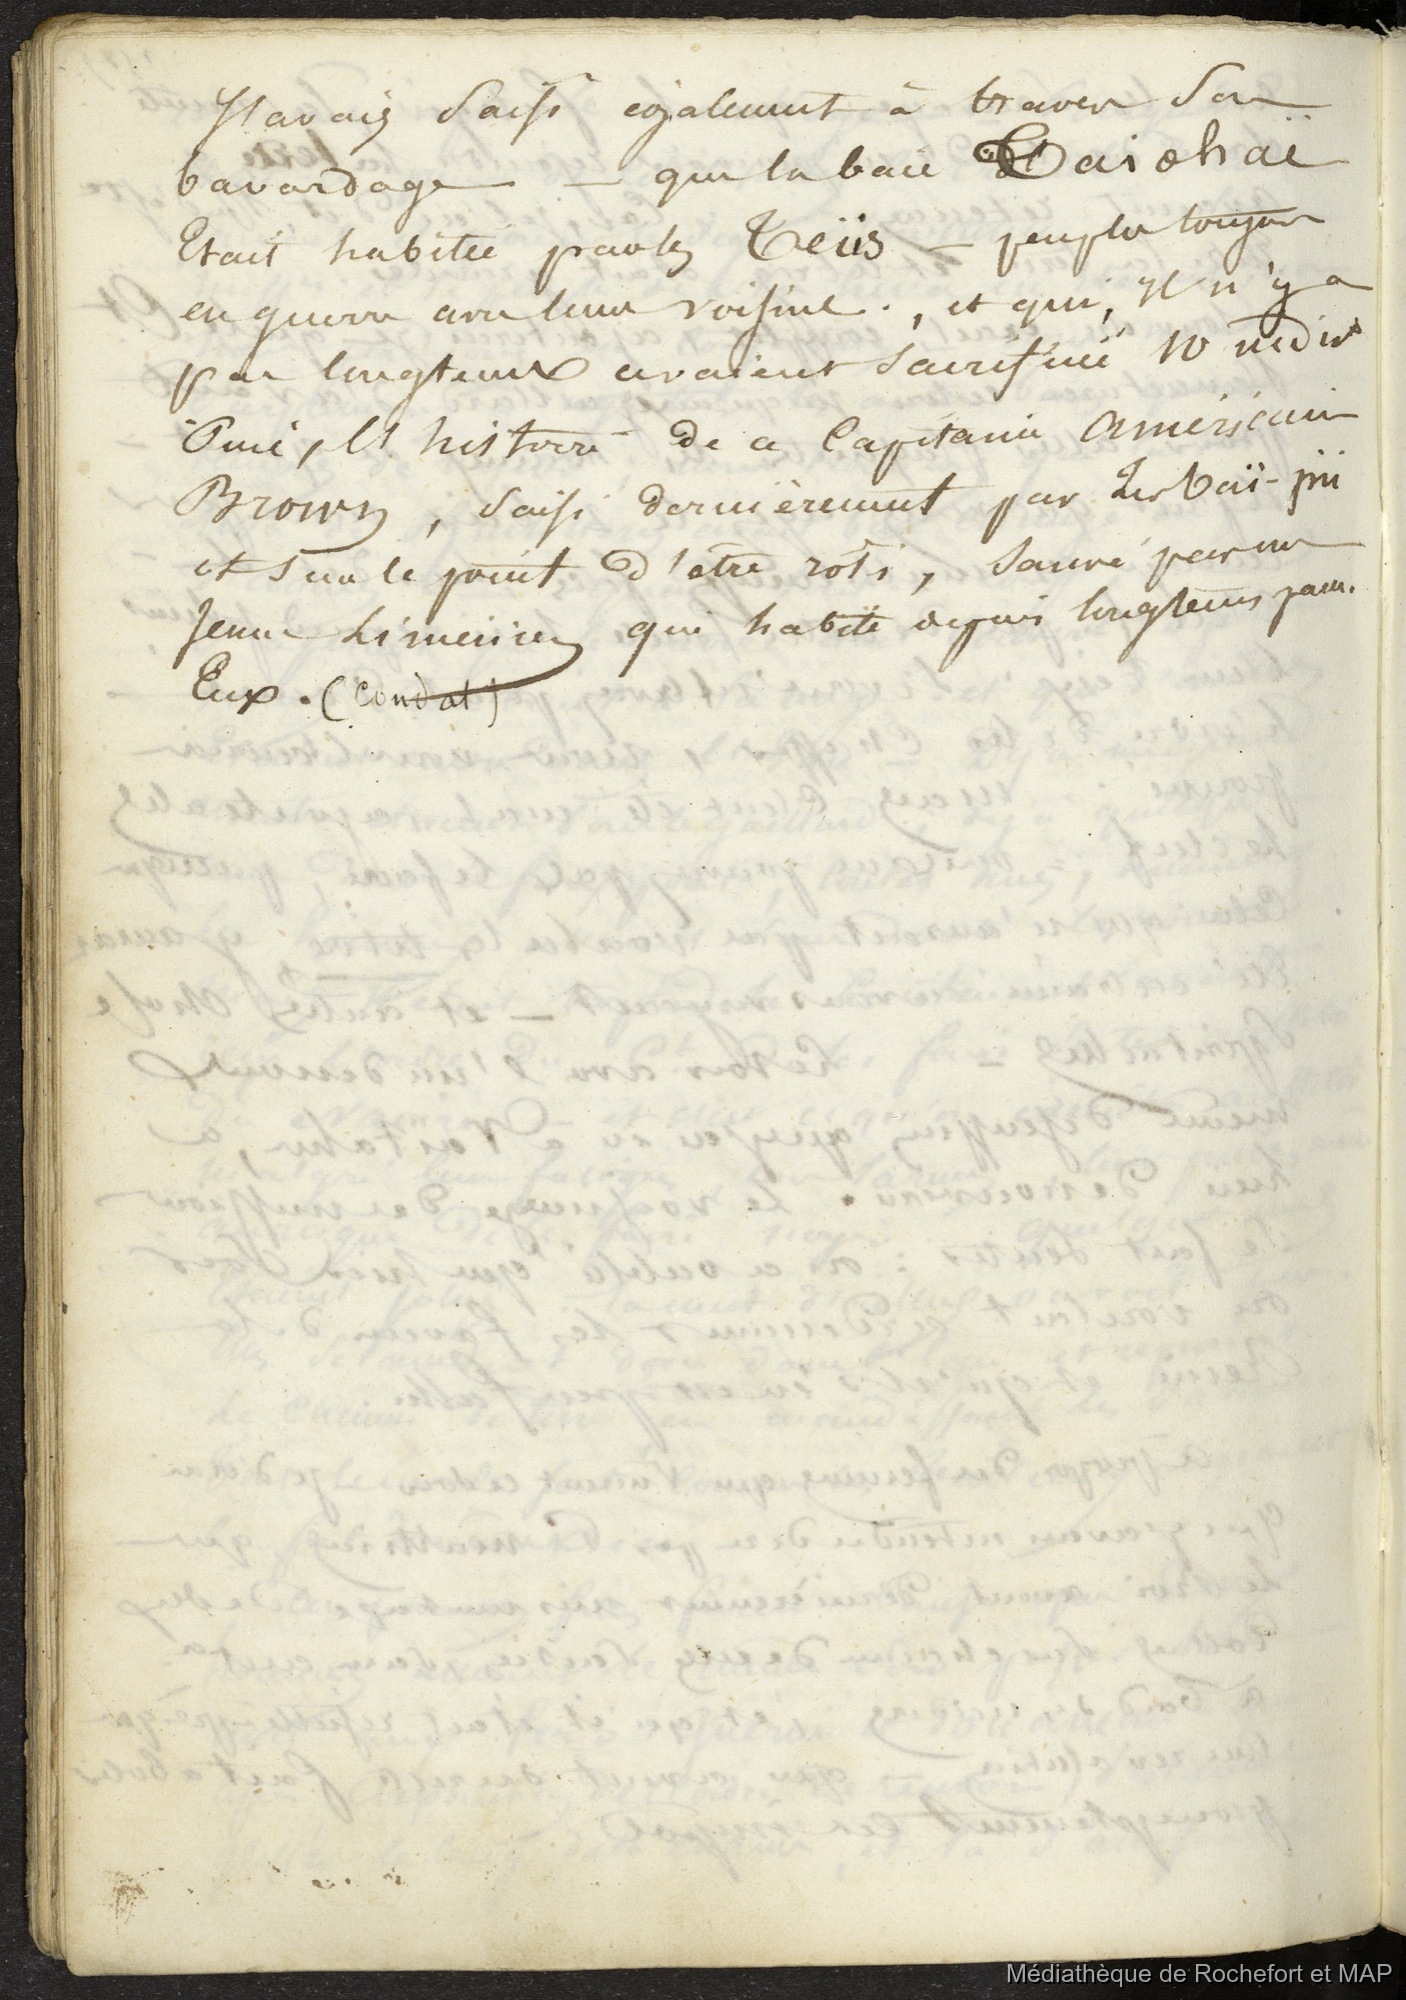 J'avais saisi également à travers son
bavardage — que la baie Taiohaë
Etait habitée par les Teiis — peuple toujours
en guerre avec leurs voisins . , et qui, il n'y a
pas longtemps avaient sacrifiié 10 indivs
Puis, l'histoire de ce Capitaine Américain
Brown, saisi dernièrement par les Taï-pii
et sur le point d'etre roti, sauvé par un
Jeune Liméiien qui habite depuis longtems parm.
Eux . (Condat)
Médiathèque de Rochefort et MAP